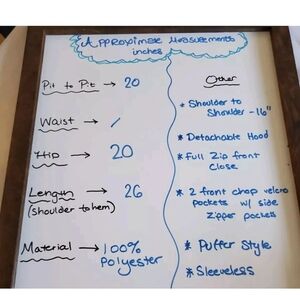 Approximate Measurements
inches
Pit to Pit → 20
Waist → /
Hip → 20
Length → 26
(shoulder to hem)
Material → 100%
Polyester
Other
* Shoulder to
Shoulder - 16"
* Detachable Hood
* Full Zip front
Close
* 2 front chop velcro
pockets w/ side
zipper pockets
* Puffer Style
* Sleeveless